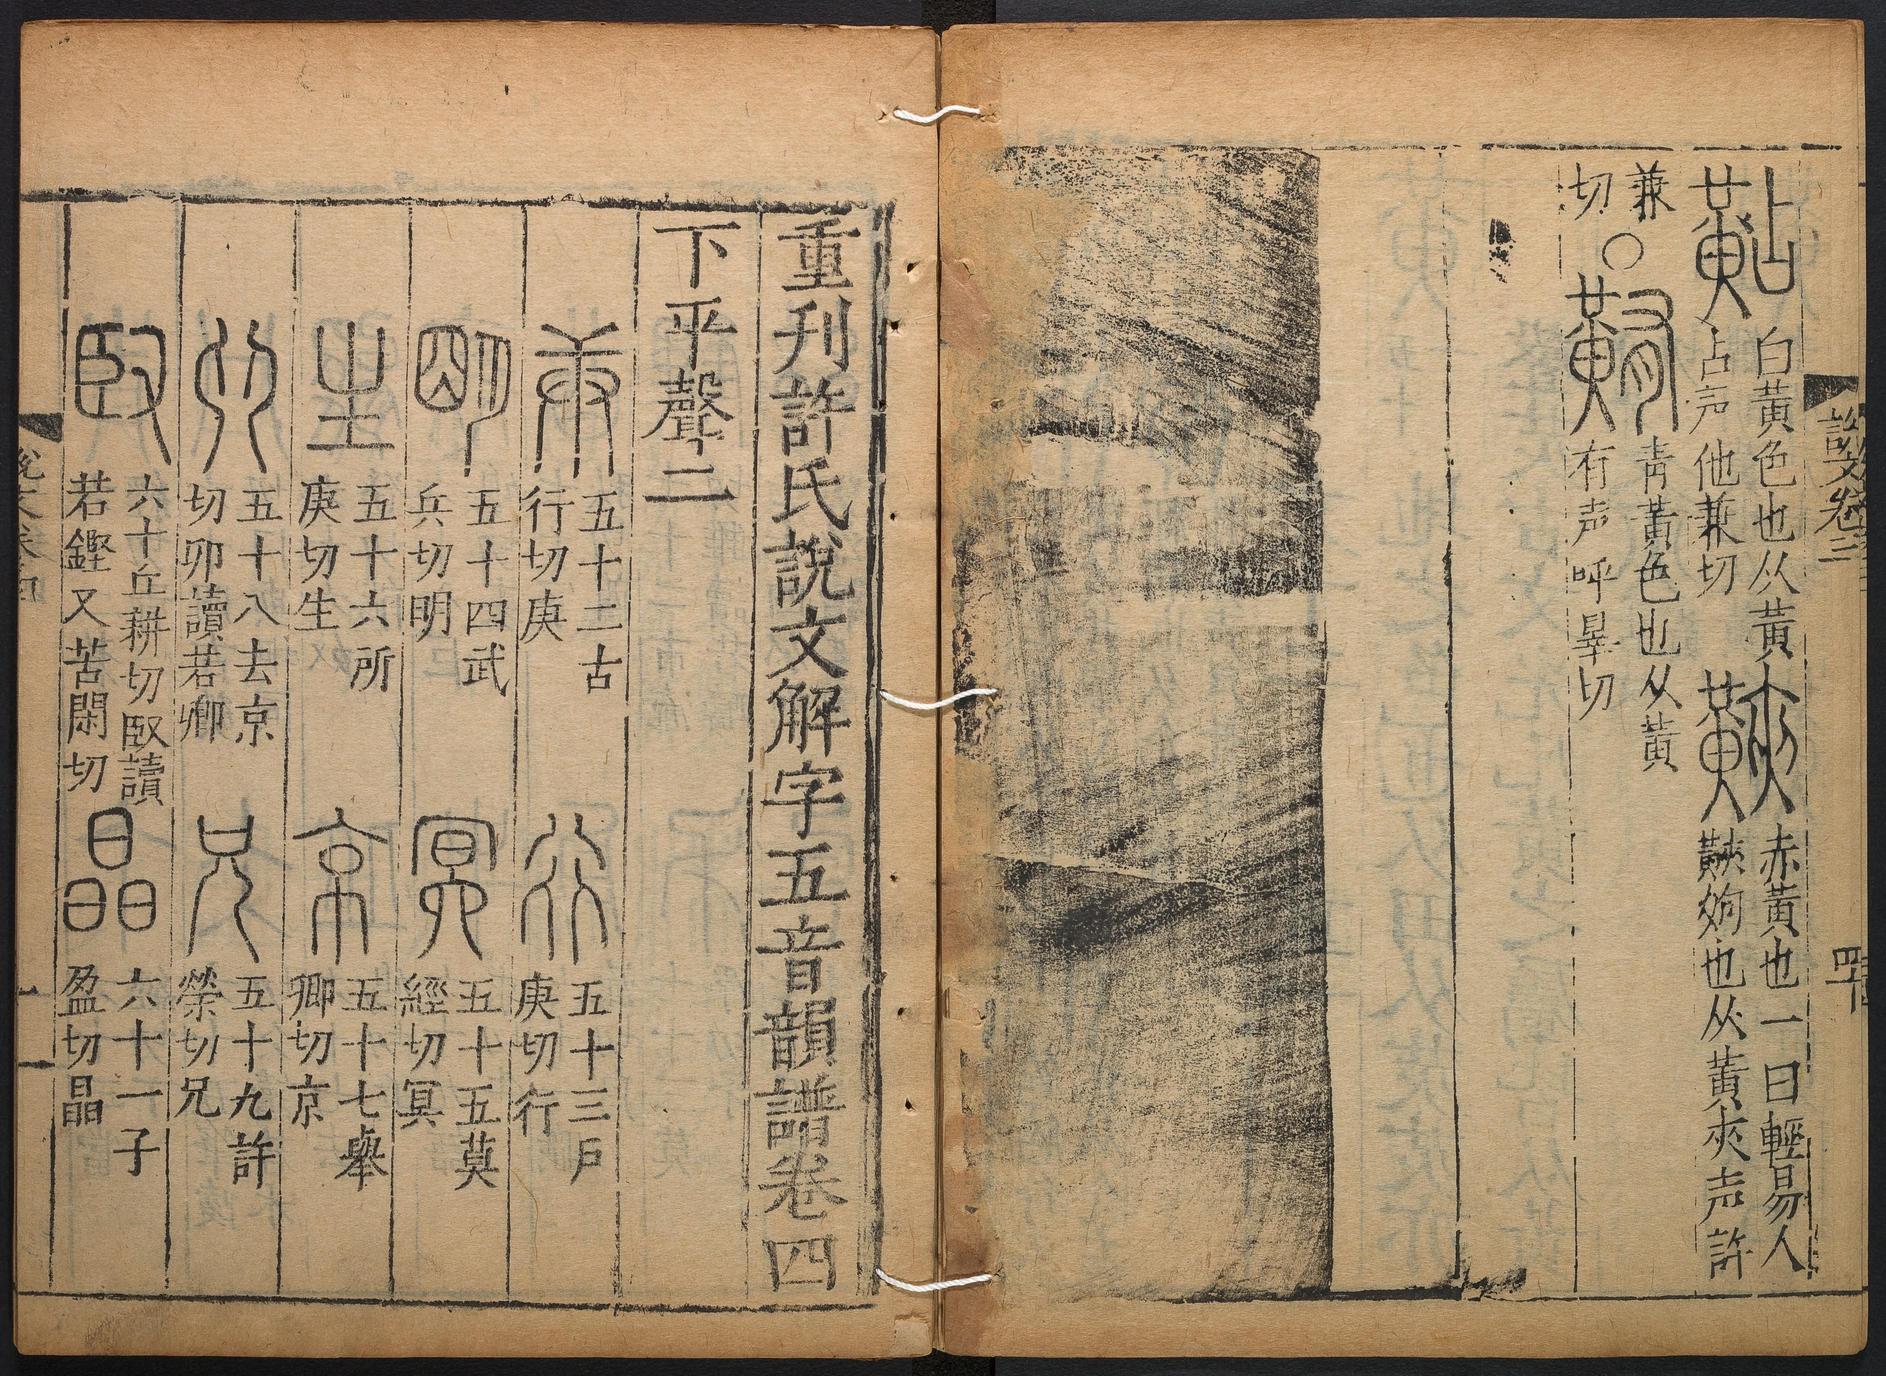 說文卷三
四十
黇白黃色也从黃
占声他兼切
䵌赤黃也一曰輕易人
䵌姁也从黃夾声許
兼
切
○䵋青黃色也从黃
有声呼辠切
重刊許氏說文解字五音韻譜卷四
下平聲二
庚五十二古
行切庚
行五十三戶
庚切行
明五十四武
兵切明
冥五十五莫
經切冥
生五十六所
庚切生
京五十七舉
卿切京
五十八去京
切卯讀若卿
兄五十九許
榮切兄
臤六十丘耕切臤讀
若鏗又苦閑切
晶六十一子
盈切晶
說文卷四
一